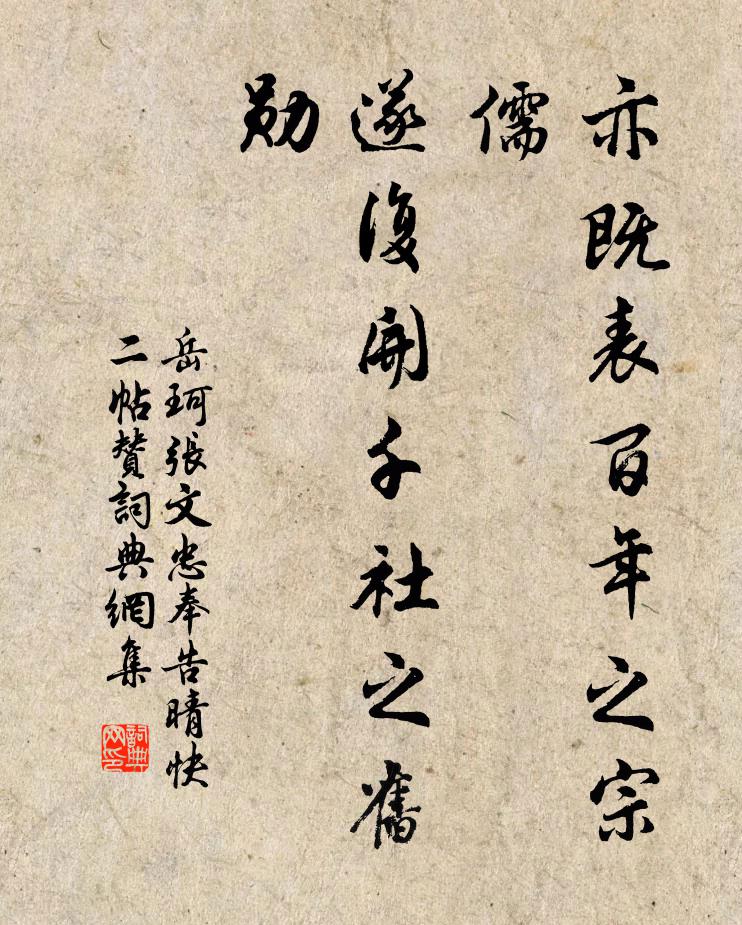 亦既表百年之宗
儒
遂復開千社之舊
勛
岳珂張文忠奉告晴快
二帖贊詞典網集
詞典網印